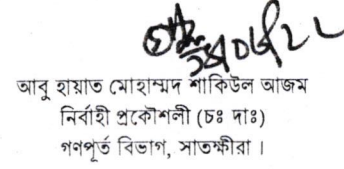 আবু হায়াত মোহাম্মদ শাকিউল আজম
নির্বাহী প্রকৌশলী (চঃ দাঃ)
গণপূর্ত বিভাগ, সাতক্ষীরা ।